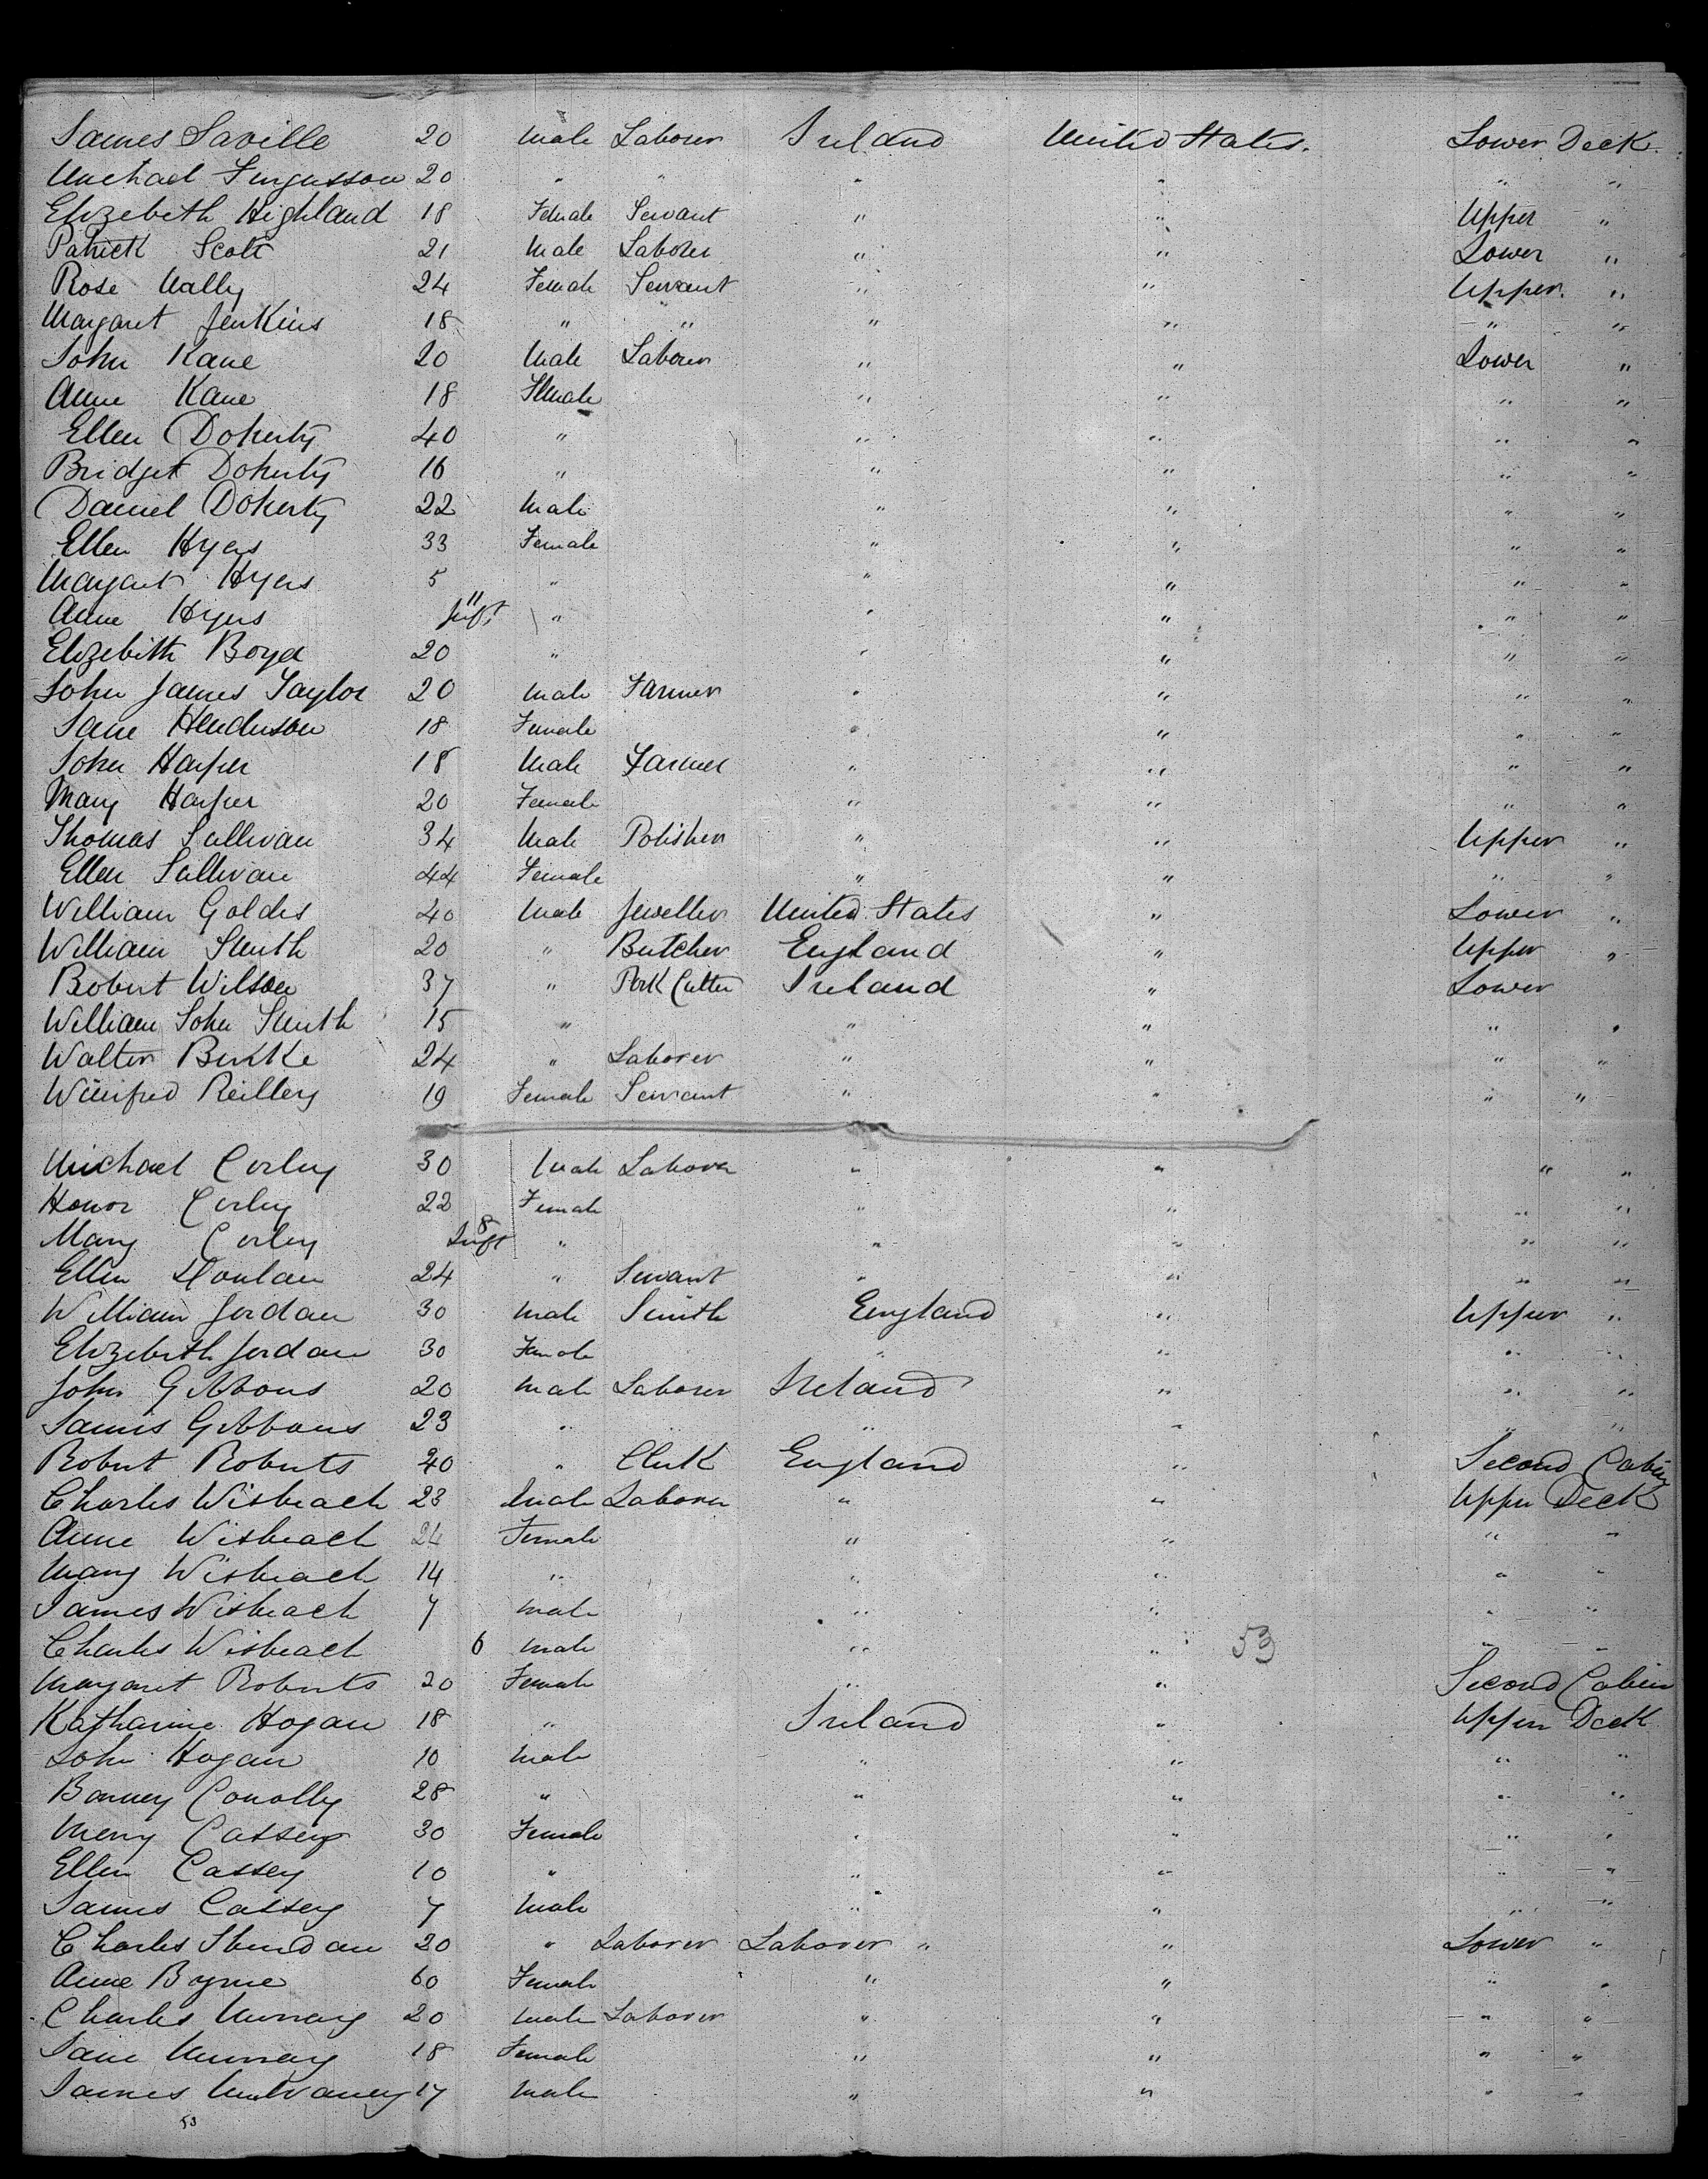 James Saville 20 Male Laborer Ireland United States. Lower Deck.
Michael Fergusson 20 " " " " " "
Elizebith Highland 18 Female Servant " " Upper "
Patrick Scott 21 Male Laborer " " Lower "
Rose Nally 24 Female Servant " " Upper "
Margaret Jenkins 18 " " " " " "
John Kane 20 Male Laborer " " Lower "
Anne Kane 18 Female " " " "
Ellen Doherty 40 " " " " "
Bridget Doherty 16 " " " " "
Daniel Doherty 22 Male " " " "
Ellen Hyers 33 Female " " " "
Margaret Hyers 5 " " " " "
Anne Hyers 11 Inft " " " " "
Elizebith Boyd 20 " " " " "
John James Taylor 20 Male Farmer " " " "
Jane Henderson 18 Female " " " "
John Harper 18 Male Farmer " " " "
Mary Harper 20 Female " " " "
Thomas Sullivan 34 Male Polisher " " Upper "
Ellen Sullivan 44 Female " " " "
William Goldis 40 Male Jeweller United States " Lower "
William Smith 20 " Butcher England " Upper "
Robert Wilson 37 " Pork Cutter Ireland " Lower
William John Smith 15 " " " " "
Walter Burke 24 " Laborer " " " "
Winifred Reillery 19 Female Servant " " " "
Michael Corley 30 Male Laborer " " " "
Honor Corley 22 Female " " " "
Mary Corley 8 Inft " " " " "
Ellen 24 " Servant " " " "
William Jordan 30 Male Smith England " Upper "
Elizebith Jordan 30 Female " " " "
John Gibbons 20 Male Laborer Ireland " " "
James Gibbons 23 " " " " "
Robert Roberts 40 " Clerk England " Second Cabin
Charles Wisbeach 23 Male Laborer " " Upper Deck
Anne Wisbeach 24 Female " " " "
Mary Wisbeach 14 " " " " "
James Wisbeach 7 Male " " " "
Charles Wisbeach 6 Male " " 53 " "
Margaret Roberts 20 Female " " Second Cabin
Katharine Hogan 18 " Ireland " Upper Deck
John Hogan 10 Male " " " "
Barney Conolly 28 " " " " "
Mery Cassey 30 Female " " " "
Ellen Cassey 10 " " " " "
James Cassey 7 Male " " " "
Charles Sheridan 20 " Laborer Laborer " " Lower "
Anne Byrne 60 Female " " " "
Charles Murray 20 Male Laborer " " " "
Jane Murray 18 Female " " " "
James Mulvaney 17 Male " " " "
53